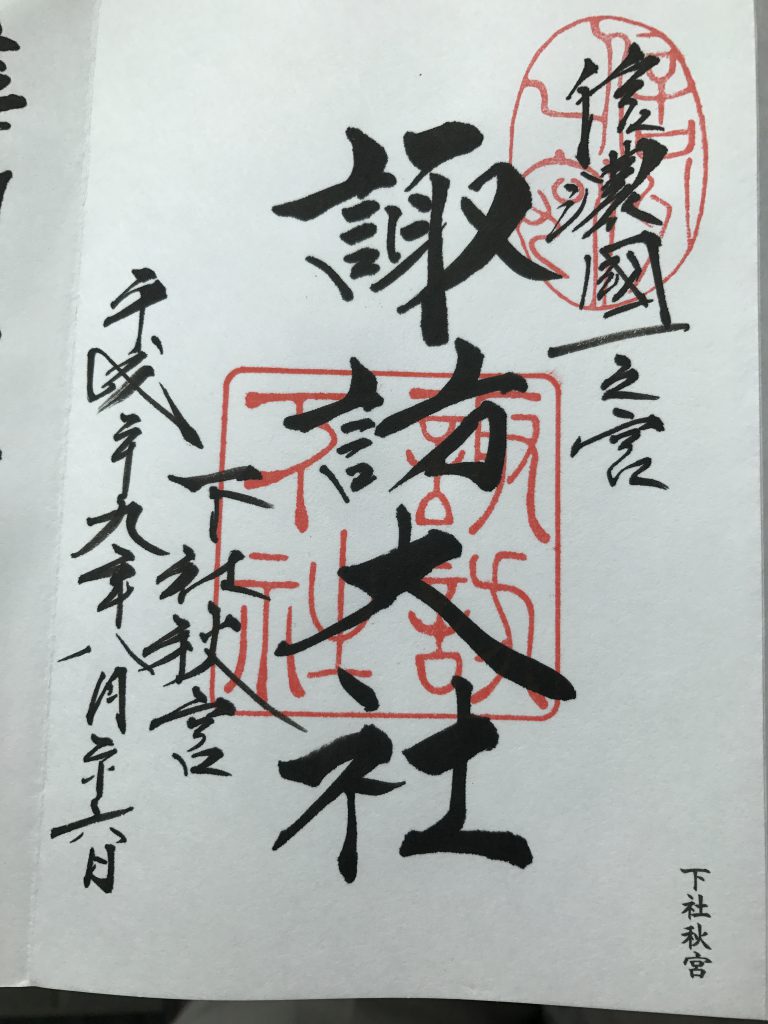 信濃國一之宮
下社秋宮
諏訪大社
諏訪
下社
下社秋宮
平成二十九年八月二十六日